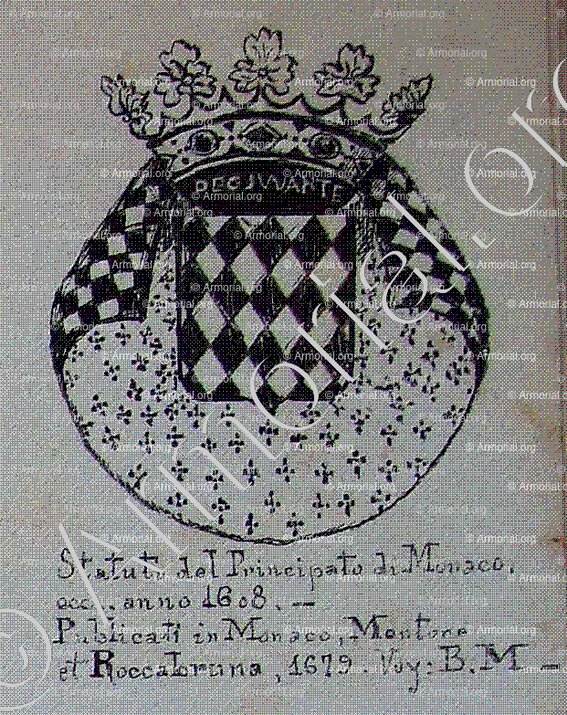 © Armorial.org
REG JVVANTE
Statuti del Principato di Monaco.
ecc. anno 1608. —
Publicati in Monaco, Mentone
et Roccabruna, 1679. Vuy: B.M —